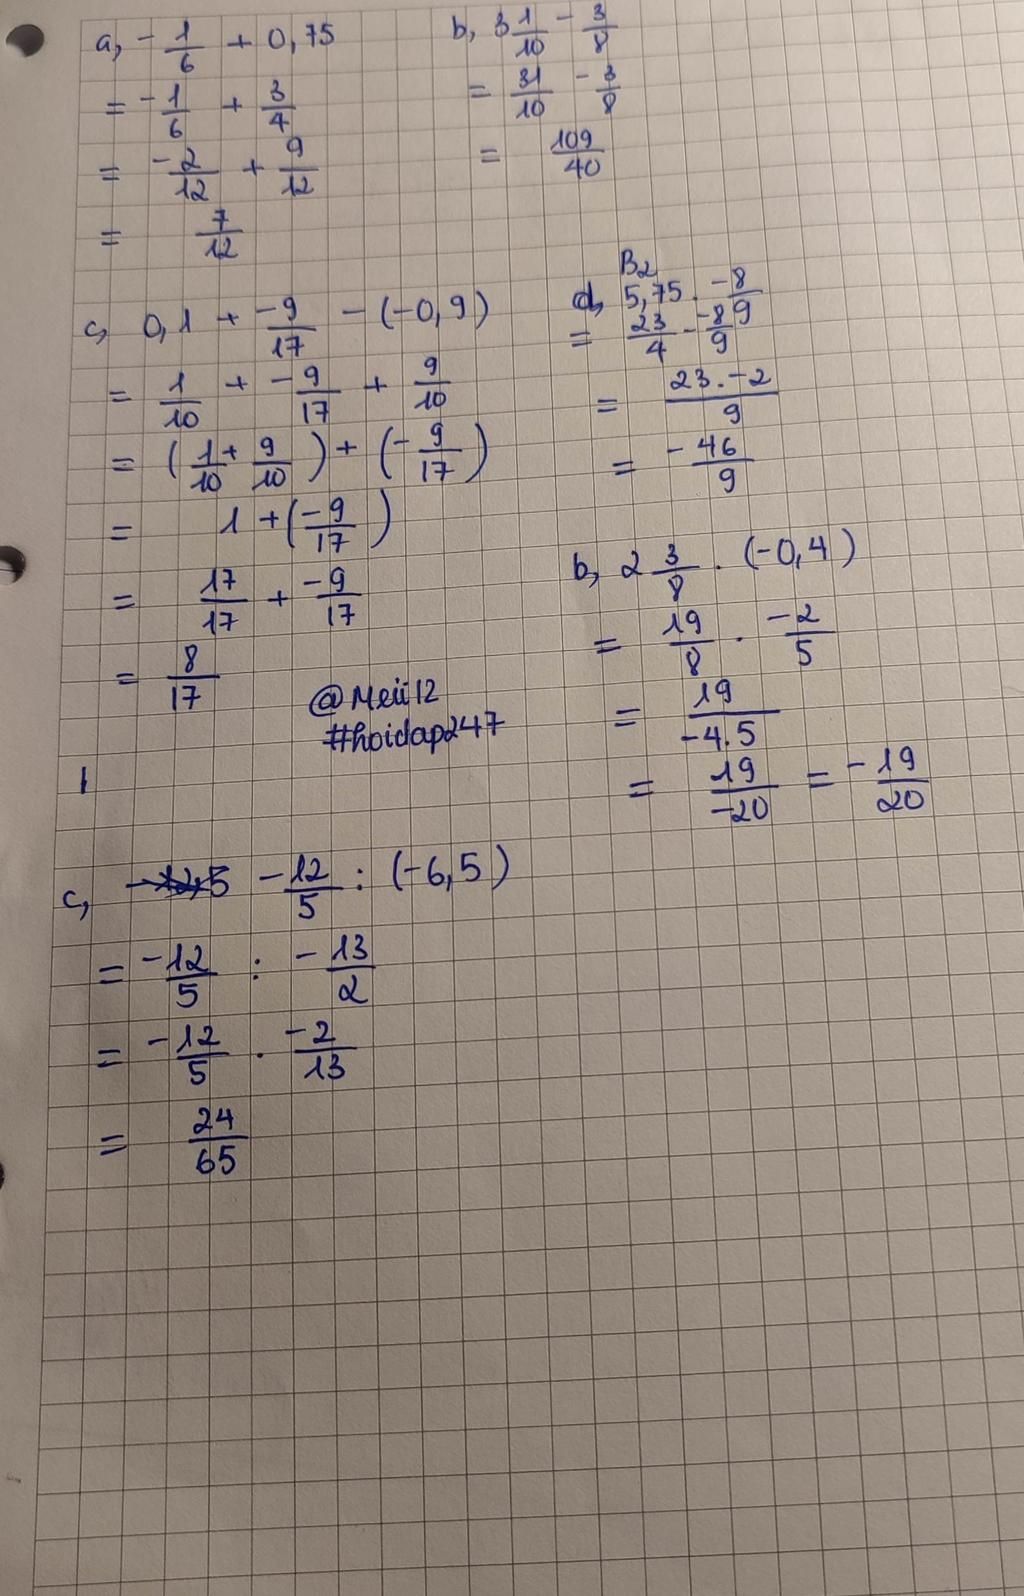 a, -1/6 + 0,75
= -1/6 + 3/4
= -2/12 + 9/12
= 7/12
b, 3 1/10 - 3/8
= 31/10 - 3/8
= 109/40
c, 0,1 + -9/17 - (-0,9)
= 1/10 + -9/17 + 9/10
= (1/10 + 9/10) + (-9/17)
= 1 + (-9/17)
= 17/17 + -9/17
= 8/17
@Meii12
#hoidap247
B2
d, 5,75 . -8/9
= 23/4 - -8/9
= 23.-2/9
= -46/9
b, 2 3/8 . (-0,4)
= 19/8 . -2/5
= 19/-4.5
= 19/-20 = -19/20
c, -12/5 : (-6,5)
= -12/5 : -13/2
= -12/5 . -2/13
= 24/65